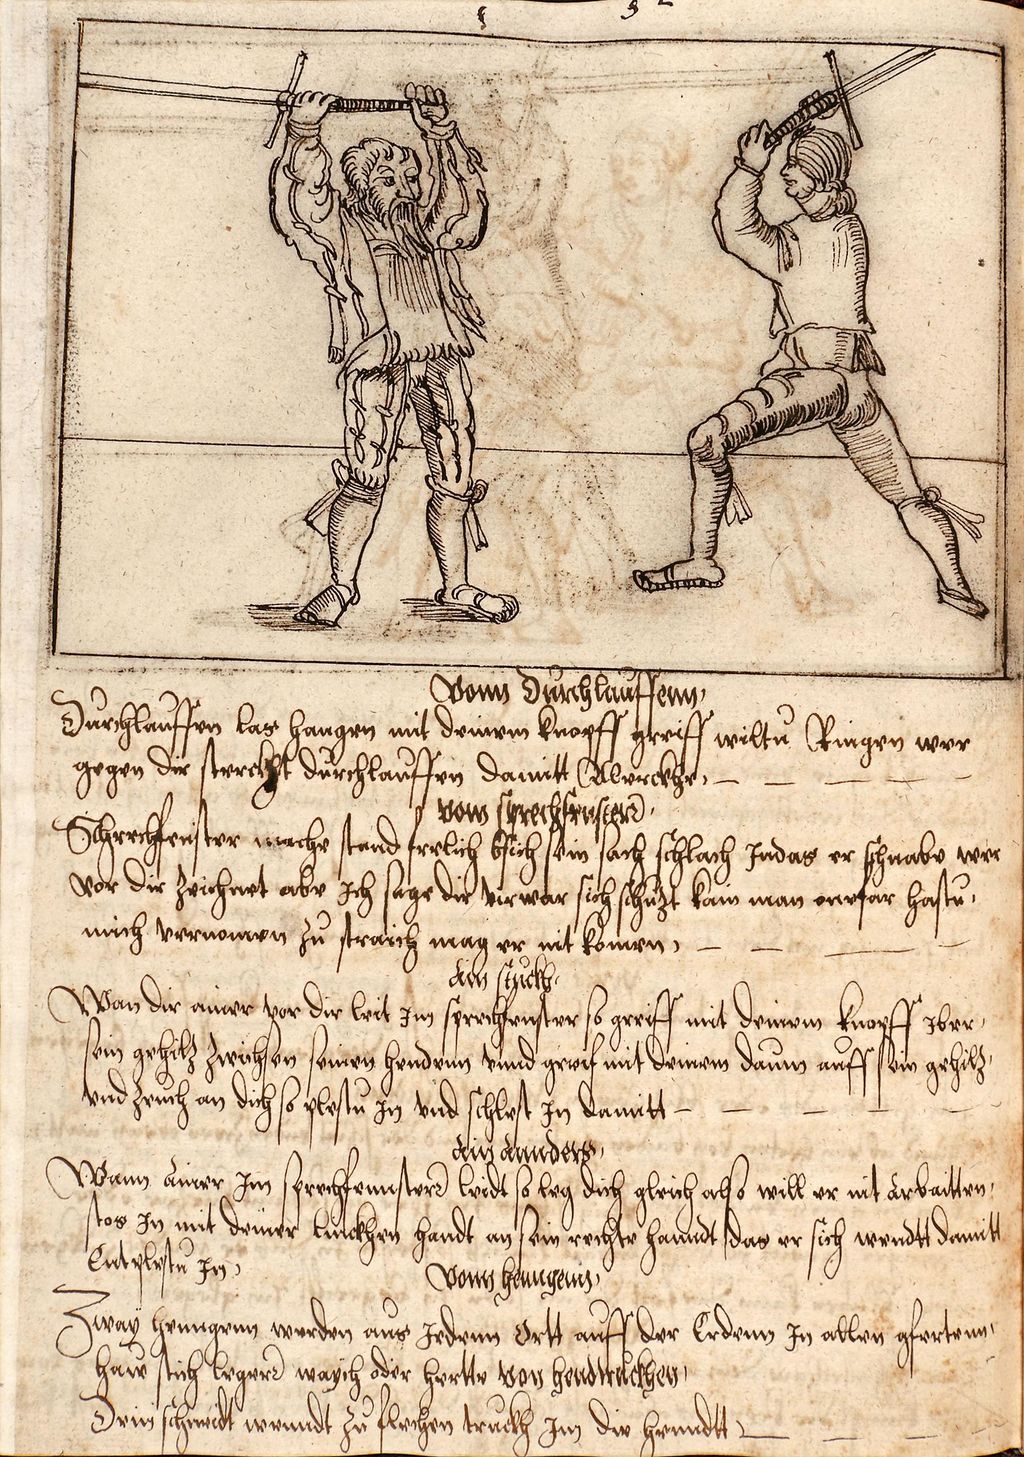 Vonn Durchlauffenn
Durchlauffen las hangen mit deinem knopff greiff wiltu Ringen wer
gegen dir sterckht durchlauffen damitt
vom sprechfenster
Schrechfenster mache stand frelich bsich sein sach schlach In das er schnabe wer
vor dir zeichnet abe Ich sage dir virwar sich schutzt kain man onefar hastu
mich vernomen zu straich mag er nit komen
Ain stuckh
Wan dir ainer vor dir leit Im sprechfenster so greiff mit deinem knopff iber
sein gehilz zwichsen seinen hendenn vnnd greif mit deinem daum auff sein gehilz
vnd zeuch an dich so plestu In vnd schlest In damitt
Ain annders
Wann Ainer Im sprechfennster leidt so leg dich gleich also will er nit Arbaitten
stos In mit deiner linckhen handt an sein rechte hanndt das er sich wendtt damitt
In
Vonn henngenn
Zway henngenn werden aus Jedenn Ortt auff der Erdenn In allen gfertenn
haw stich leger waych oder hertte von hendtruckhen
Dein schneidt wenndt zu flechen truckh Im die henndtt